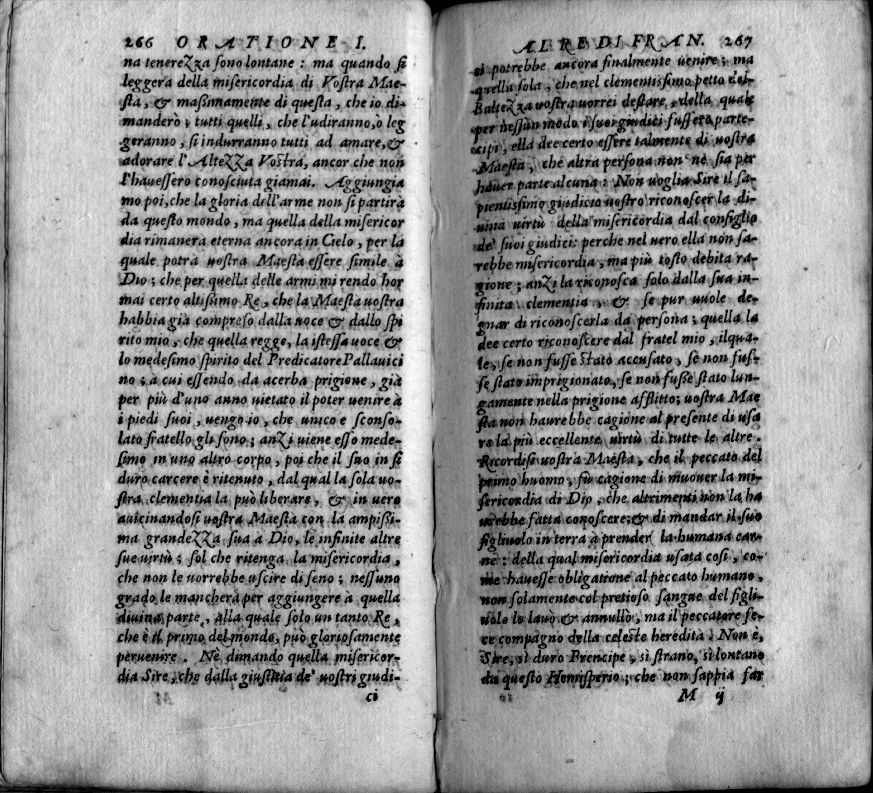 266 ORATIONE I.
na tenerezza sono lontane: ma quando si
leggerà della misericordia di Vostra Mae-
stà, & massimamente di questa, che io di-
manderò; tutti quelli, che l'udiranno, ò leg
geranno, si indurranno tutti ad amare, &
adorare l'Altezza Vostra, ancor che non
l'havessero conosciuta giamai. Aggiungia
mo poi, che la gloria dell'arme non si partirà
da questo mondo, ma quella della misericor
dia rimanera eterna ancora in Cielo, per la
quale potrà vostra Maestà essere simile à
Dio; che per quella delle armi mi rendo hor
mai certo altissimo Re, che la Maestà vostra
habbia già compreso dalla voce & dallo spi
rito mio, che quella regge, la istessa voce &
lo medesimo spirito del Predicatore Pallavici
no; à cui essendo da acerba prigione, già
per più d'uno anno vietato il poter venire à
i piedi suoi, vengo io, che unico e sconso-
lato fratello gli sono; anzi viene esso mede-
simo in uno altro corpo, poi che il suo in sì
duro carcere è ritenuto, dal qual la sola vo-
stra clementia la può liberare, & in vero
avicinandosi vostra Maestà con la ampissi-
ma grandezza sua à Dio, le infinite altre
sue virtù; sol che ritenga la misericordia,
che non le vorrebbe uscire di seno; nessuno
grado le mancherà per aggiungere à quella
divina parte, alla quale solo un tanto Re,
che è il primo del mondo, può gloriosamente
pervenire. Nè dimando quella misericor-
dia Sire, che dalla giustitia de' vostri giudi-
ci
AL RE DI FRAN. 267
ci potrebbe ancora finalmente venire; ma
quella sola, che nel clementissimo petto del-
l'altezza vostra vorrei destare, della quale
per nessun modo i suoi giudici fussero parte-
cipi, ella dee certo essere talmente di vostra
Maestà, che altra persona non ne sia per
haver parte alcuna: Non voglia Sire il sa-
pientissimo giudicio vostro riconoscer la di-
vina virtù della misericordia dal consiglio
de' suoi giudici: perche nel vero ella non sa-
rebbe misericordia, ma più tosto debita ra-
gione; anzi la riconosca solo dalla sua in-
finita clementia, & se pur vuole de-
gnar di riconoscerla da persona; quella la
dee certo riconoscere dal fratel mio, ilqua-
le, se non fusse stato accusato, se non fus-
se stato imprigionato, se non fusse stato lun-
gamente nella prigione afflitto; vostra Mae
stà non haurebbe cagione al presente di usa
re la più eccellente virtù di tutte le altre.
Ricordisi vostra Maestà, che il peccato del
primo huomo, fù cagione di muover la mi-
sericordia di Dio, che altrimenti non la ha
urebbe fatta conoscere; & di mandar il suo
figliuolo in terra à prender la humana car-
ne: della qual misericordia usata così, co-
me havesse obligatione al peccato humano,
non solamente col pretioso sangue del figli-
uolo lo lavò & annullò, ma il peccatore fe-
ce compagno della celeste heredità. Non è,
Sire, sì duro Prencipe, sì strano, sì lontano
da questo Hemisperio; che non sappia far
M ij